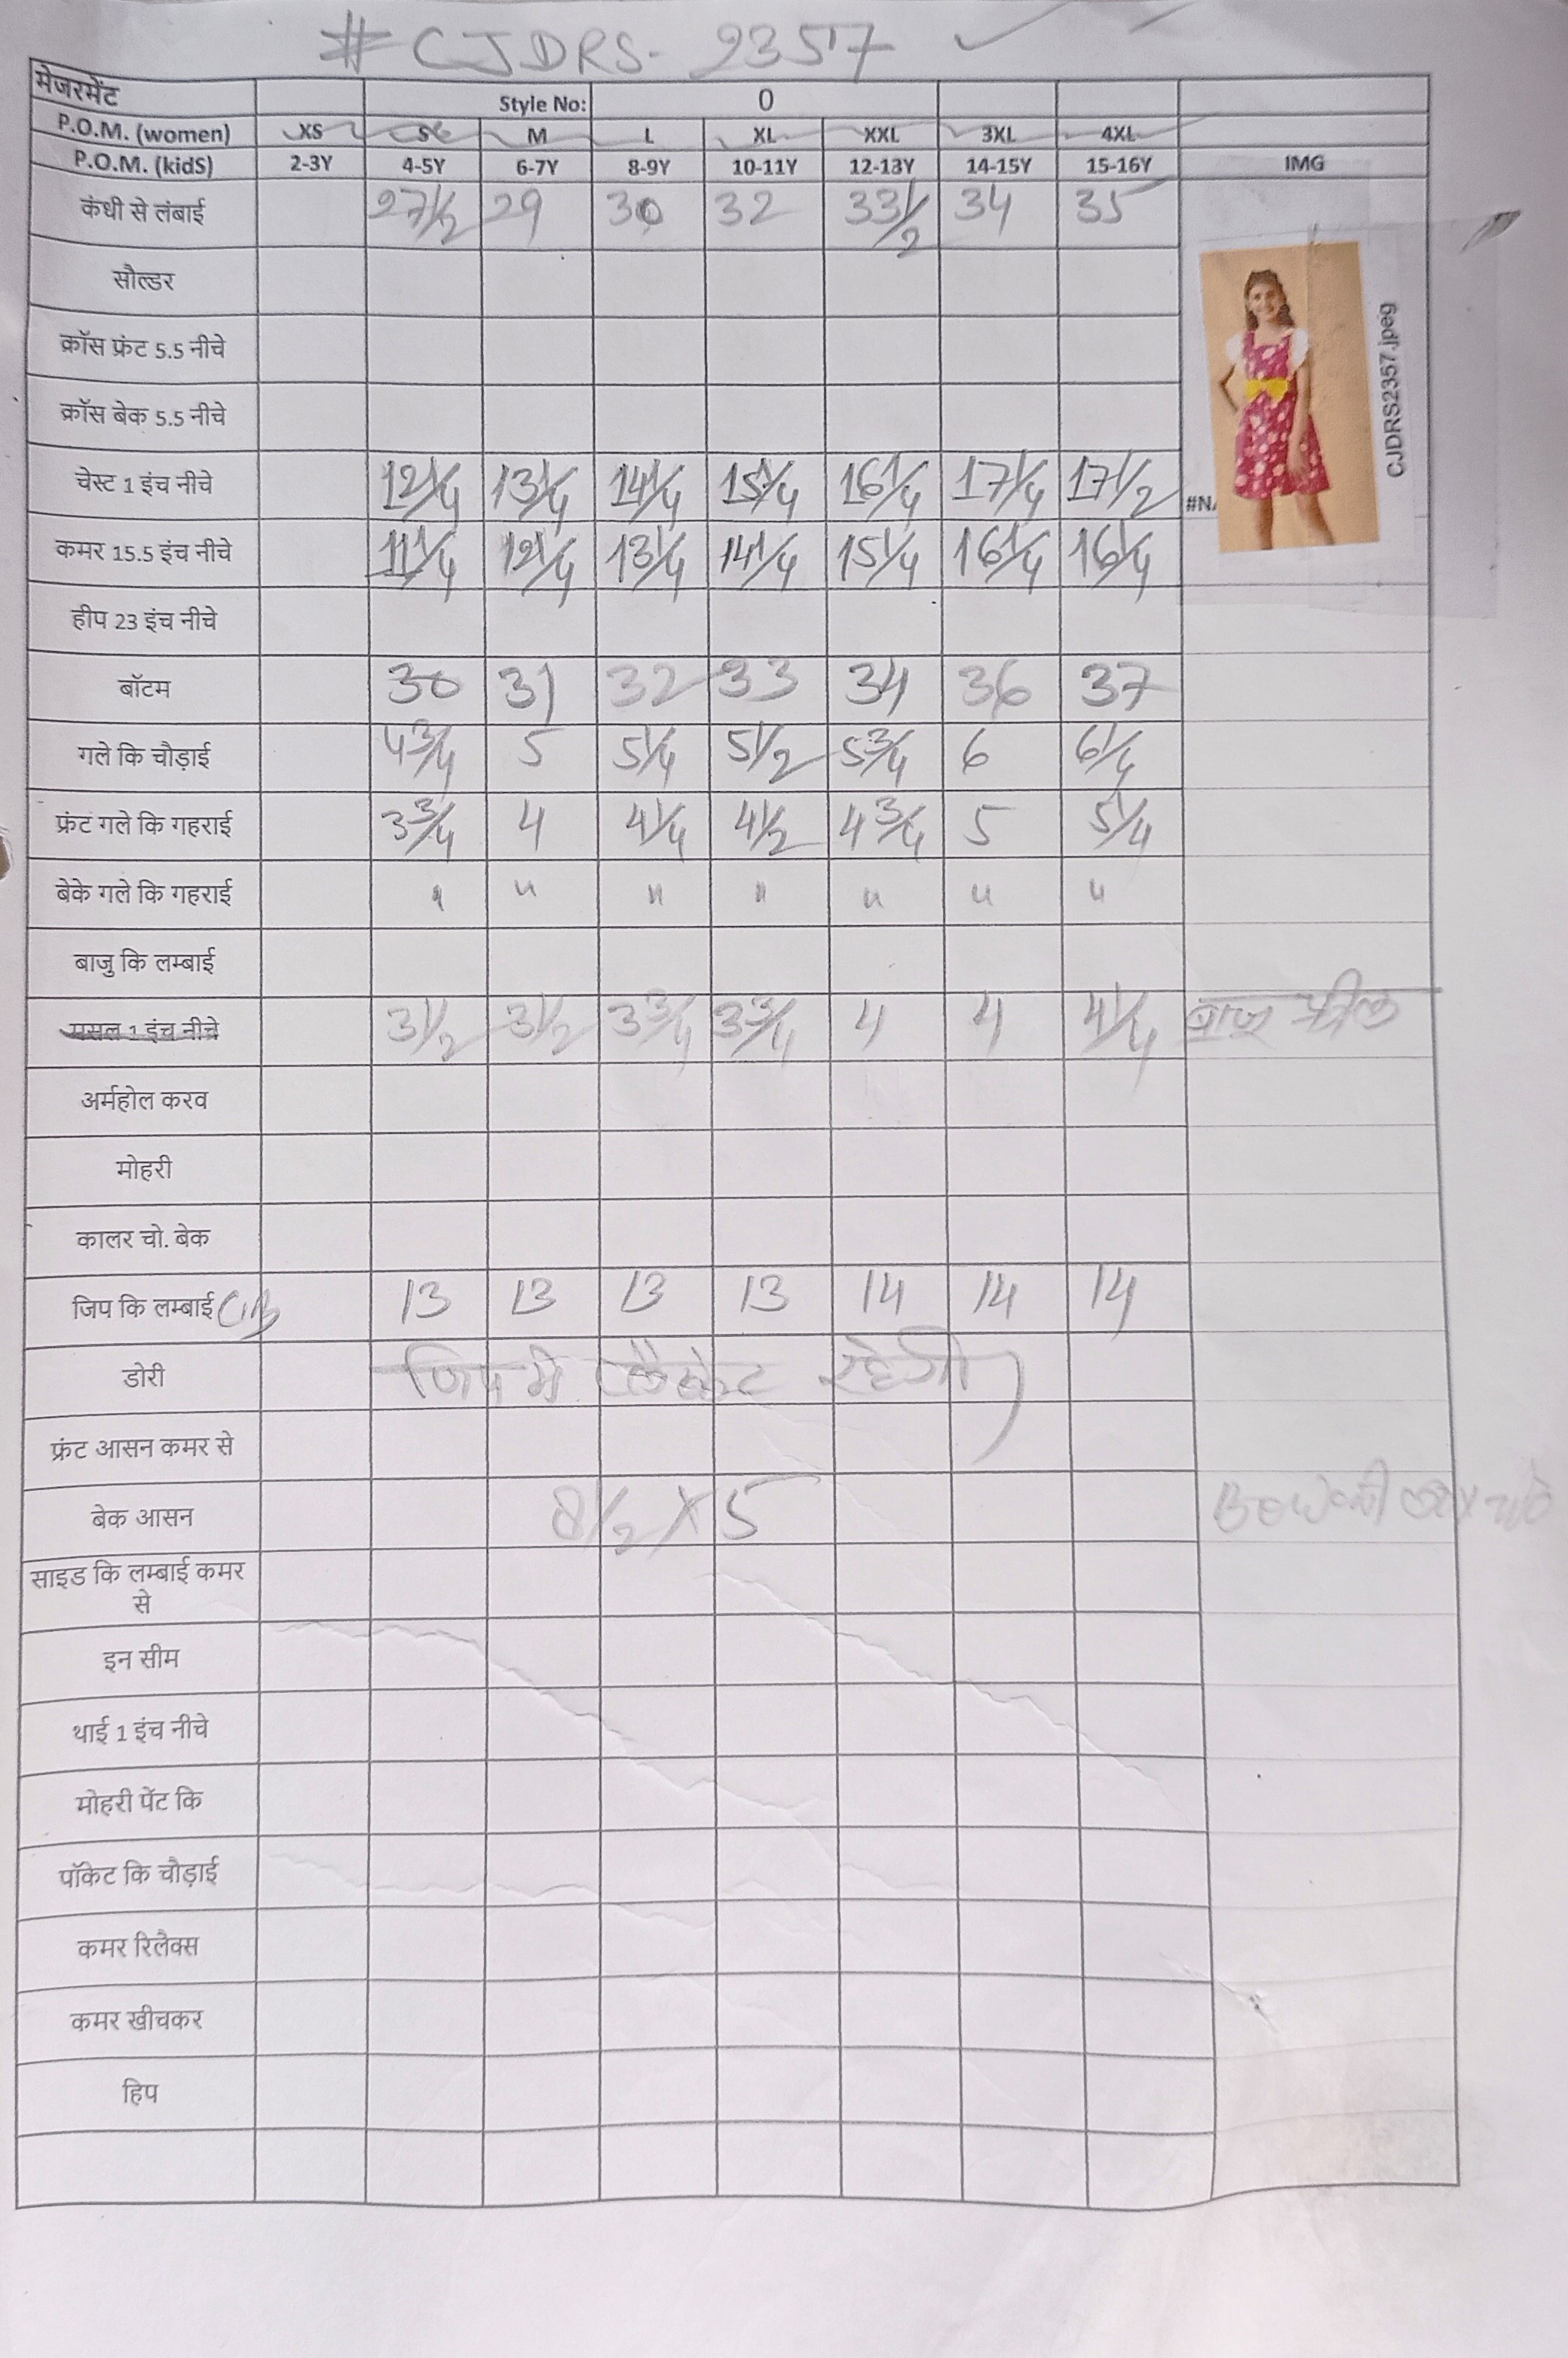 # CJDRS- 2357
मेजरमेंट Style No: 0
P.O.M. (women) XS S M L XL XXL 3XL 4XL
P.O.M. (kidS) 2-3Y 4-5Y 6-7Y 8-9Y 10-11Y 12-13Y 14-15Y 15-16Y IMG
कंधी से लंबाई 27 1/2 29 30 32 33 1/2 34 35
सौल्डर
CJDRS2357.jpeg
क्रॉस फ्रंट 5.5 नीचे
क्रॉस बेक 5.5 नीचे
चेस्ट 1 इंच नीचे 12 1/4 13 1/4 14 1/4 15 1/4 16 1/4 17 1/4 17 1/2 #N
कमर 15.5 इंच नीचे 11 1/4 12 1/4 13 1/4 14 1/4 15 1/4 16 1/4 16 1/4
हीप 23 इंच नीचे
बॉटम 30 31 32 33 34 36 37
गले कि चौड़ाई 4 3/4 5 5 1/4 5 1/2 5 3/4 6 6 1/4
फ्रंट गले कि गहराई 3 3/4 4 4 1/4 4 1/2 4 3/4 5 5 1/4
बेके गले कि गहराई " " " " " " "
बाजु कि लम्बाई
मसल 1 इंच नीचे 3 1/2 3 1/2 3 3/4 3 3/4 4 4 4 1/4 बाजू फ्रील
अर्महोल करव
मोहरी
कालर चो. बेक
जिप कि लम्बाई 13 13 13 13 14 14 14
डोरी जिप मे रहेगी
फ्रंट आसन कमर से
बेक आसन 8 1/2 X 5
साइड कि लम्बाई कमर
से
इन सीम
थाई 1 इंच नीचे
मोहरी पेंट कि
पॉकेट कि चौड़ाई
कमर रिलैक्स
कमर खीचकर
हिप